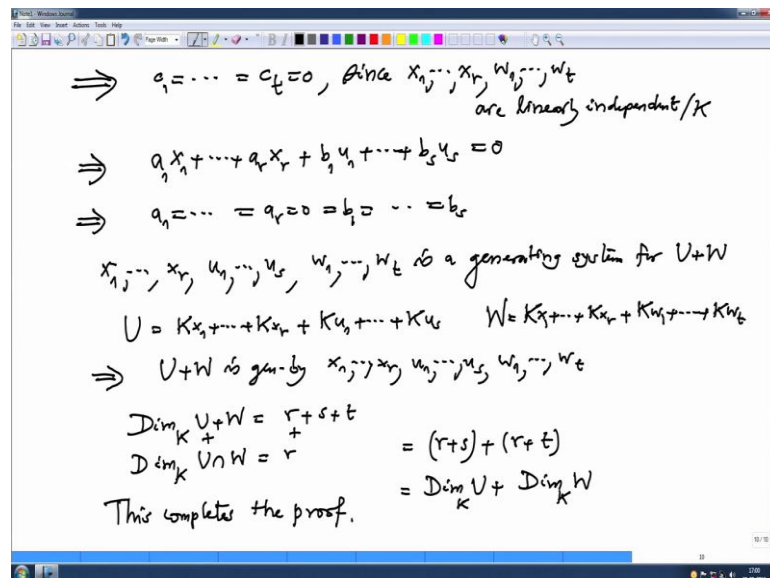 Note1 - Windows Journal
File Edit View Insert Actions Tools Help
Page Width
⟹ c₁ = ⋯ = c_t = 0, since x₁, ⋯, x_r, w₁, ⋯, w_t
are linearly independent/K
⟹ a₁x₁ + ⋯ + a_r x_r + b₁u₁ + ⋯ + b_s u_s = 0
⟹ a₁ = ⋯ = a_r = 0 = b₁ = ⋯ = b_s
x₁, ⋯, x_r, u₁, ⋯, u_s, w₁, ⋯, w_t is a generating system for U+W
U = Kx₁ + ⋯ + Kx_r + Ku₁ + ⋯ + Ku_s W = Kx₁ + ⋯ + Kx_r + Kw₁ + ⋯ + Kw_t
⟹ U+W is gen. by x₁, ⋯, x_r, u₁, ⋯, u_s, w₁, ⋯, w_t
Dim_K U+W = r+s+t
+ +
Dim_K U∩W = r = (r+s) + (r+t)
= Dim_K U + Dim_K W
This completes the proof.
10/10
10
17:00